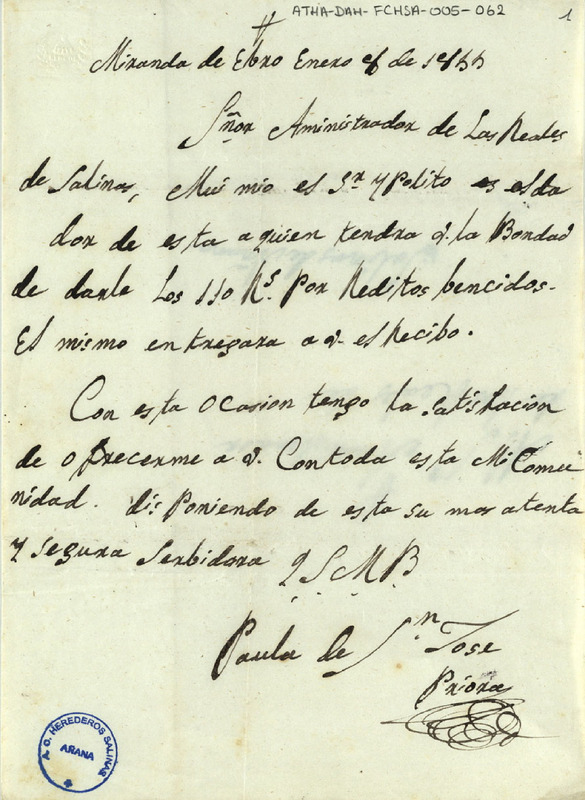 ATHA-DAH-FCHSA-005-062
1
Miranda de Ebro Enero de
Señor Aministrador de Las Reales
de Salinas, Mui mio es Sr. Ypolito es el da
dor de esta a quien tendra v. la Bondad
de darle Los 110 Rs. Por Reditos bencidos.
El mismo entregara a v. el Recibo.
Con esta Ocasion tengo la Satisfacion
de ofrecerme a v. Con toda esta Mi Comu
nidad. disponiendo de esta su mas atenta
Y segura Serbidora Q S M B
Paula de Sn. Jose
Priora
A. C. HEREDEROS SALINAS
ARANA